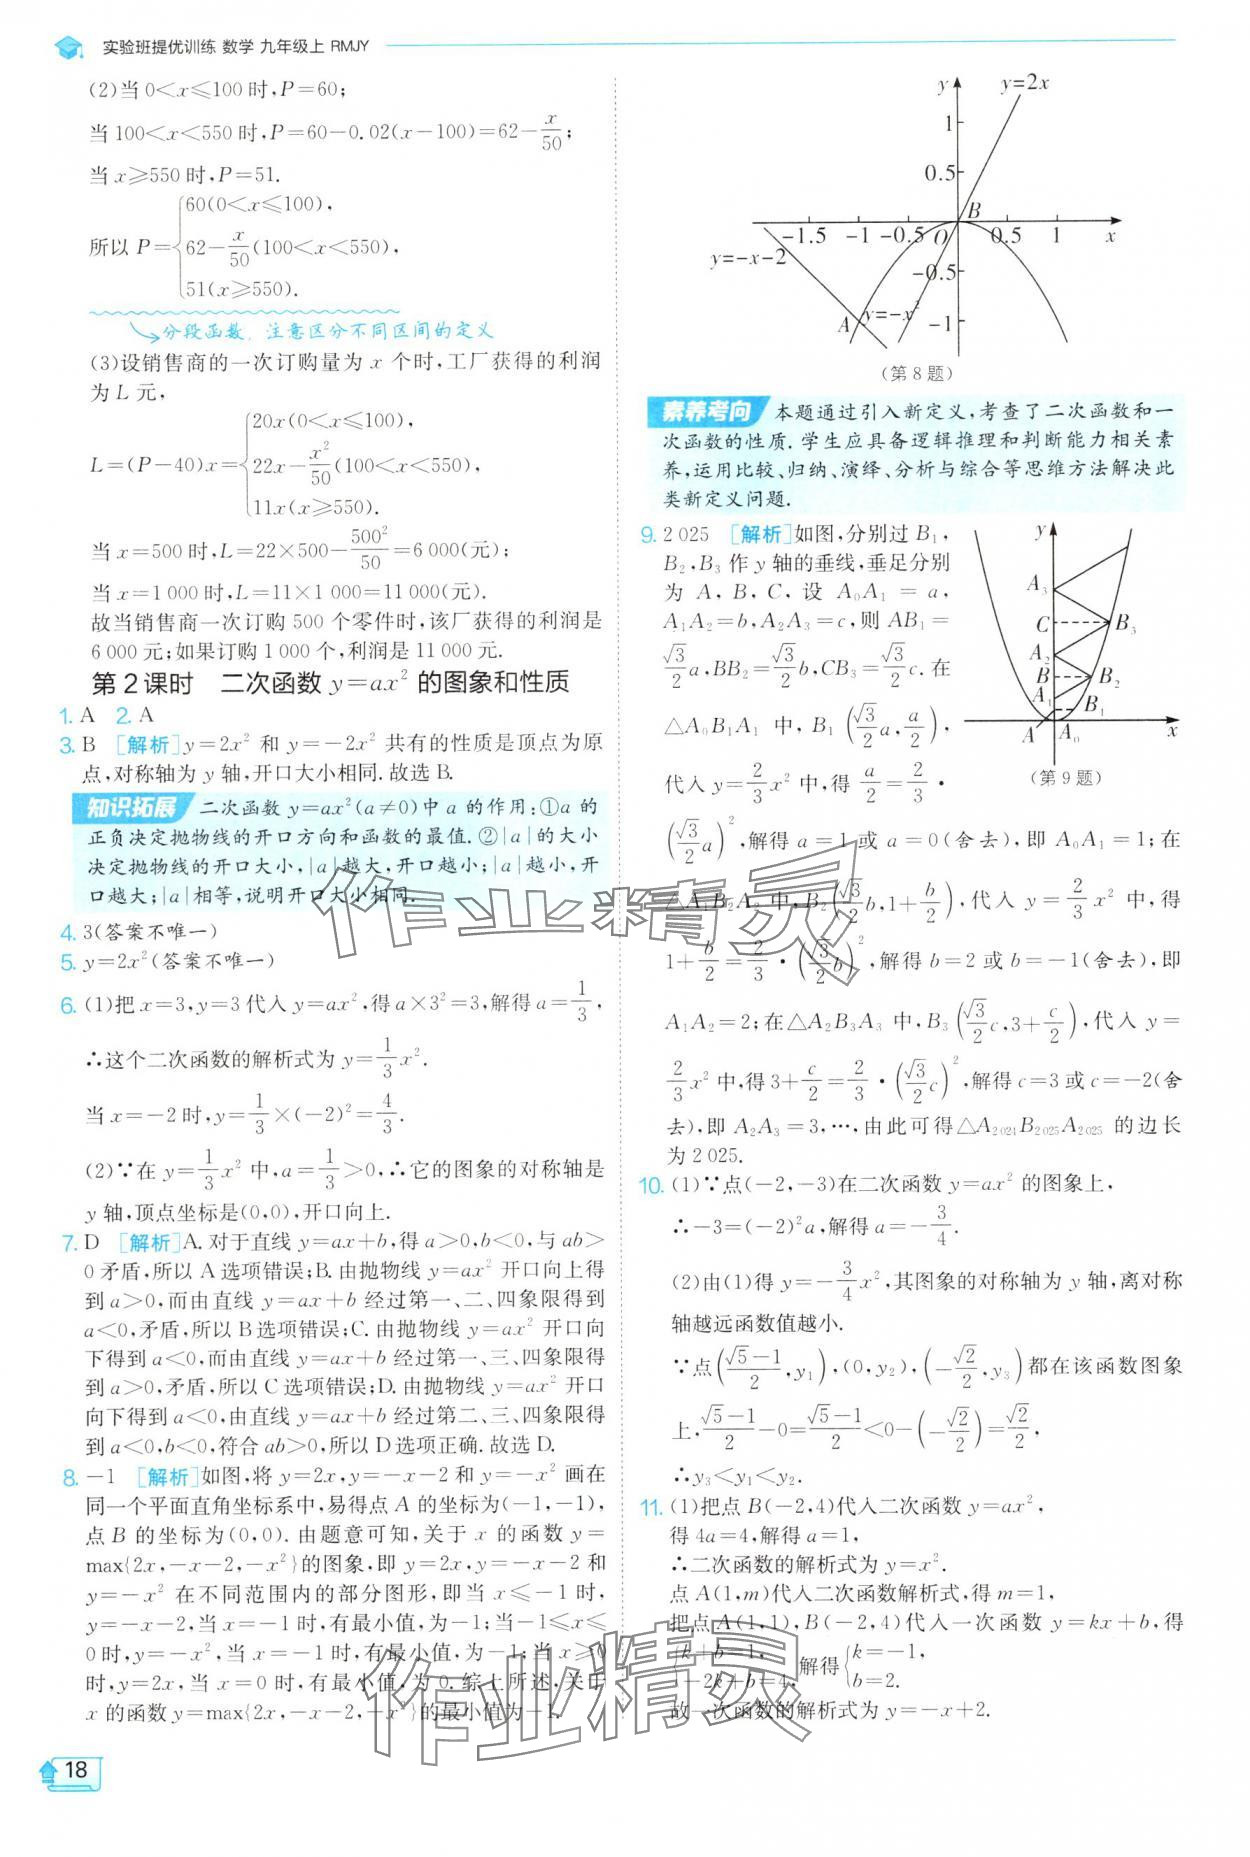 实验班提优训练 数学 九年级上 RMJY
(2)当 0<x⩽100 时,P=60;
当 100<x<550 时,P=60-0.02(x-100)=62-x/50;
当 x⩾550 时,P=51.
所以 P={60(0<x⩽100),
62-x/50(100<x<550),
51(x⩾550).
分段函数，注意区分不同区间的定义
(3)设销售商的一次订购量为 x 个时,工厂获得的利润
为 L 元,
L=(P-40)x={20x(0<x⩽100),
22x-x²/50(100<x<550),
11x(x⩾550).
当 x=500 时,L=22×500-500²/50=6 000(元);
当 x=1 000 时,L=11×1 000=11 000(元).
故当销售商一次订购 500 个零件时,该厂获得的利润是
6 000 元;如果订购 1 000 个,利润是 11 000 元.
第 2 课时 二次函数 y=ax² 的图象和性质
1. A 2. A
3. B [解析]y=2x² 和 y=-2x² 共有的性质是顶点为原
点,对称轴为 y 轴,开口大小相同.故选 B.
知识拓展 二次函数 y=ax²(a≠0)中 a 的作用:①a 的
正负决定抛物线的开口方向和函数的最值.②|a|的大小
决定抛物线的开口大小,|a|越大,开口越小;|a|越小,开
口越大;|a|相等,说明开口大小相同.
4. 3(答案不唯一)
5. y=2x²(答案不唯一)
6. (1)把 x=3,y=3 代入 y=ax²,得 a×3²=3,解得 a=1/3,
∴这个二次函数的解析式为 y=1/3x².
当 x=-2 时,y=1/3×(-2)²=4/3.
(2)∵在 y=1/3x² 中,a=1/3>0,∴它的图象的对称轴是
y 轴,顶点坐标是(0,0),开口向上.
7. D [解析]A. 对于直线 y=ax+b,得 a>0,b<0,与 ab>
0 矛盾,所以 A 选项错误;B. 由抛物线 y=ax² 开口向上得
到 a>0,而由直线 y=ax+b 经过第一、二、四象限得到
a<0,矛盾,所以 B 选项错误;C. 由抛物线 y=ax² 开口向
下得到 a<0,而由直线 y=ax+b 经过第一、三、四象限得
到 a>0,矛盾,所以 C 选项错误;D. 由抛物线 y=ax² 开口
向下得到 a<0,由直线 y=ax+b 经过第二、三、四象限得
到 a<0,b<0,符合 ab>0,所以 D 选项正确.故选 D.
8. -1 [解析]如图,将 y=2x,y=-x-2 和 y=-x² 画在
同一个平面直角坐标系中,易得点 A 的坐标为(-1,-1),
点 B 的坐标为(0,0). 由题意可知,关于 x 的函数 y=
max{2x,-x-2,-x²}的图象,即 y=2x,y=-x-2 和
y=-x² 在不同范围内的部分图形,即当 x⩽-1 时,
y=-x-2,当 x=-1 时,有最小值,为-1;当-1⩽x⩽
0 时,y=-x²,当 x=-1 时,有最小值,为-1;当 x⩾0
时,y=2x,当 x=0 时,有最小值,为 0.综上所述,关于
x 的函数 y=max{2x,-x-2,-x²}的最小值为-1.
18
y
y=2x
1
0.5
B
-1.5 -1 -0.5 O 0.5 1 x
y=-x-2
-0.5
y=-x²
A
-1
(第 8 题)
素养考向 本题通过引入新定义,考查了二次函数和一
次函数的性质.学生应具备逻辑推理和判断能力相关素
养,运用比较、归纳、演绎、分析与综合等思维方法解决此
类新定义问题.
9. 2 025 [解析]如图,分别过 B₁,
B₂,B₃ 作 y 轴的垂线,垂足分别
为 A, B, C, 设 A₀A₁ = a,
A₁A₂=b,A₂A₃=c,则 AB₁=
√3/2a,BB₂=√3/2b,CB₃=√3/2c.在
△A₀B₁A₁ 中,B₁(√3/2a,a/2),
代入 y=2/3x² 中,得 a/2=2/3·
(√3/2a)²,解得 a=1 或 a=0(舍去),即 A₀A₁=1;在
△A₁B₂A₂ 中,B₂(√3/2b,1+b/2),代入 y=2/3x² 中,得
1+b/2=2/3·(√3/2b)²,解得 b=2 或 b=-1(舍去),即
A₁A₂=2;在△A₂B₃A₃ 中,B₃(√3/2c,3+c/2),代入 y=
2/3x² 中,得 3+c/2=2/3·(√3/2c)²,解得 c=3 或 c=-2(舍
去),即 A₂A₃=3,…,由此可得△A₂₀₂₄B₂₀₂₅A₂₀₂₅ 的边长
为 2 025.
y
A₃
C
B₃
A₂
B
B₂
A₁
B₁
A
A₀
x
(第 9 题)
10. (1)∵点(-2,-3)在二次函数 y=ax² 的图象上,
∴-3=(-2)²a,解得 a=-3/4.
(2)由(1)得 y=-3/4x²,其图象的对称轴为 y 轴,离对称
轴越远函数值越小.
∵点((√5-1)/2,y₁),(0,y₂),(-√2/2,y₃)都在该函数图象
上,(√5-1)/2-0=(√5-1)/2<0-(-√2/2)=√2/2,
∴y₃<y₁<y₂.
11. (1)把点 B(-2,4)代入二次函数 y=ax²,
得 4a=4,解得 a=1,
∴二次函数的解析式为 y=x².
点 A(1,m)代入二次函数解析式,得 m=1,
把点 A(1,1),B(-2,4)代入一次函数 y=kx+b,得
{k+b=1,
-2k+b=4,解得{k=-1,
b=2.
故一次函数的解析式为 y=-x+2.
作业精灵
作业精灵